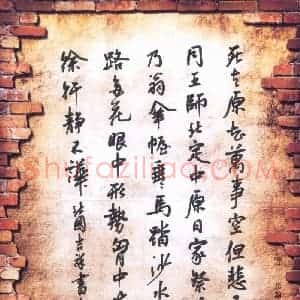 死去原知萬事空但悲
同王師北定中原日家祭
乃翁傘幄垂馬踏沙水
路多花眼中形勢胸中
徐行静不譁
shufaziliao.com